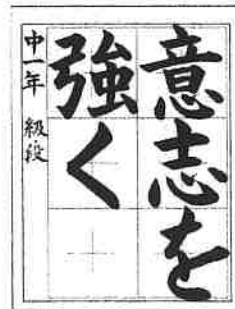 意志を
強く
中一年 級段